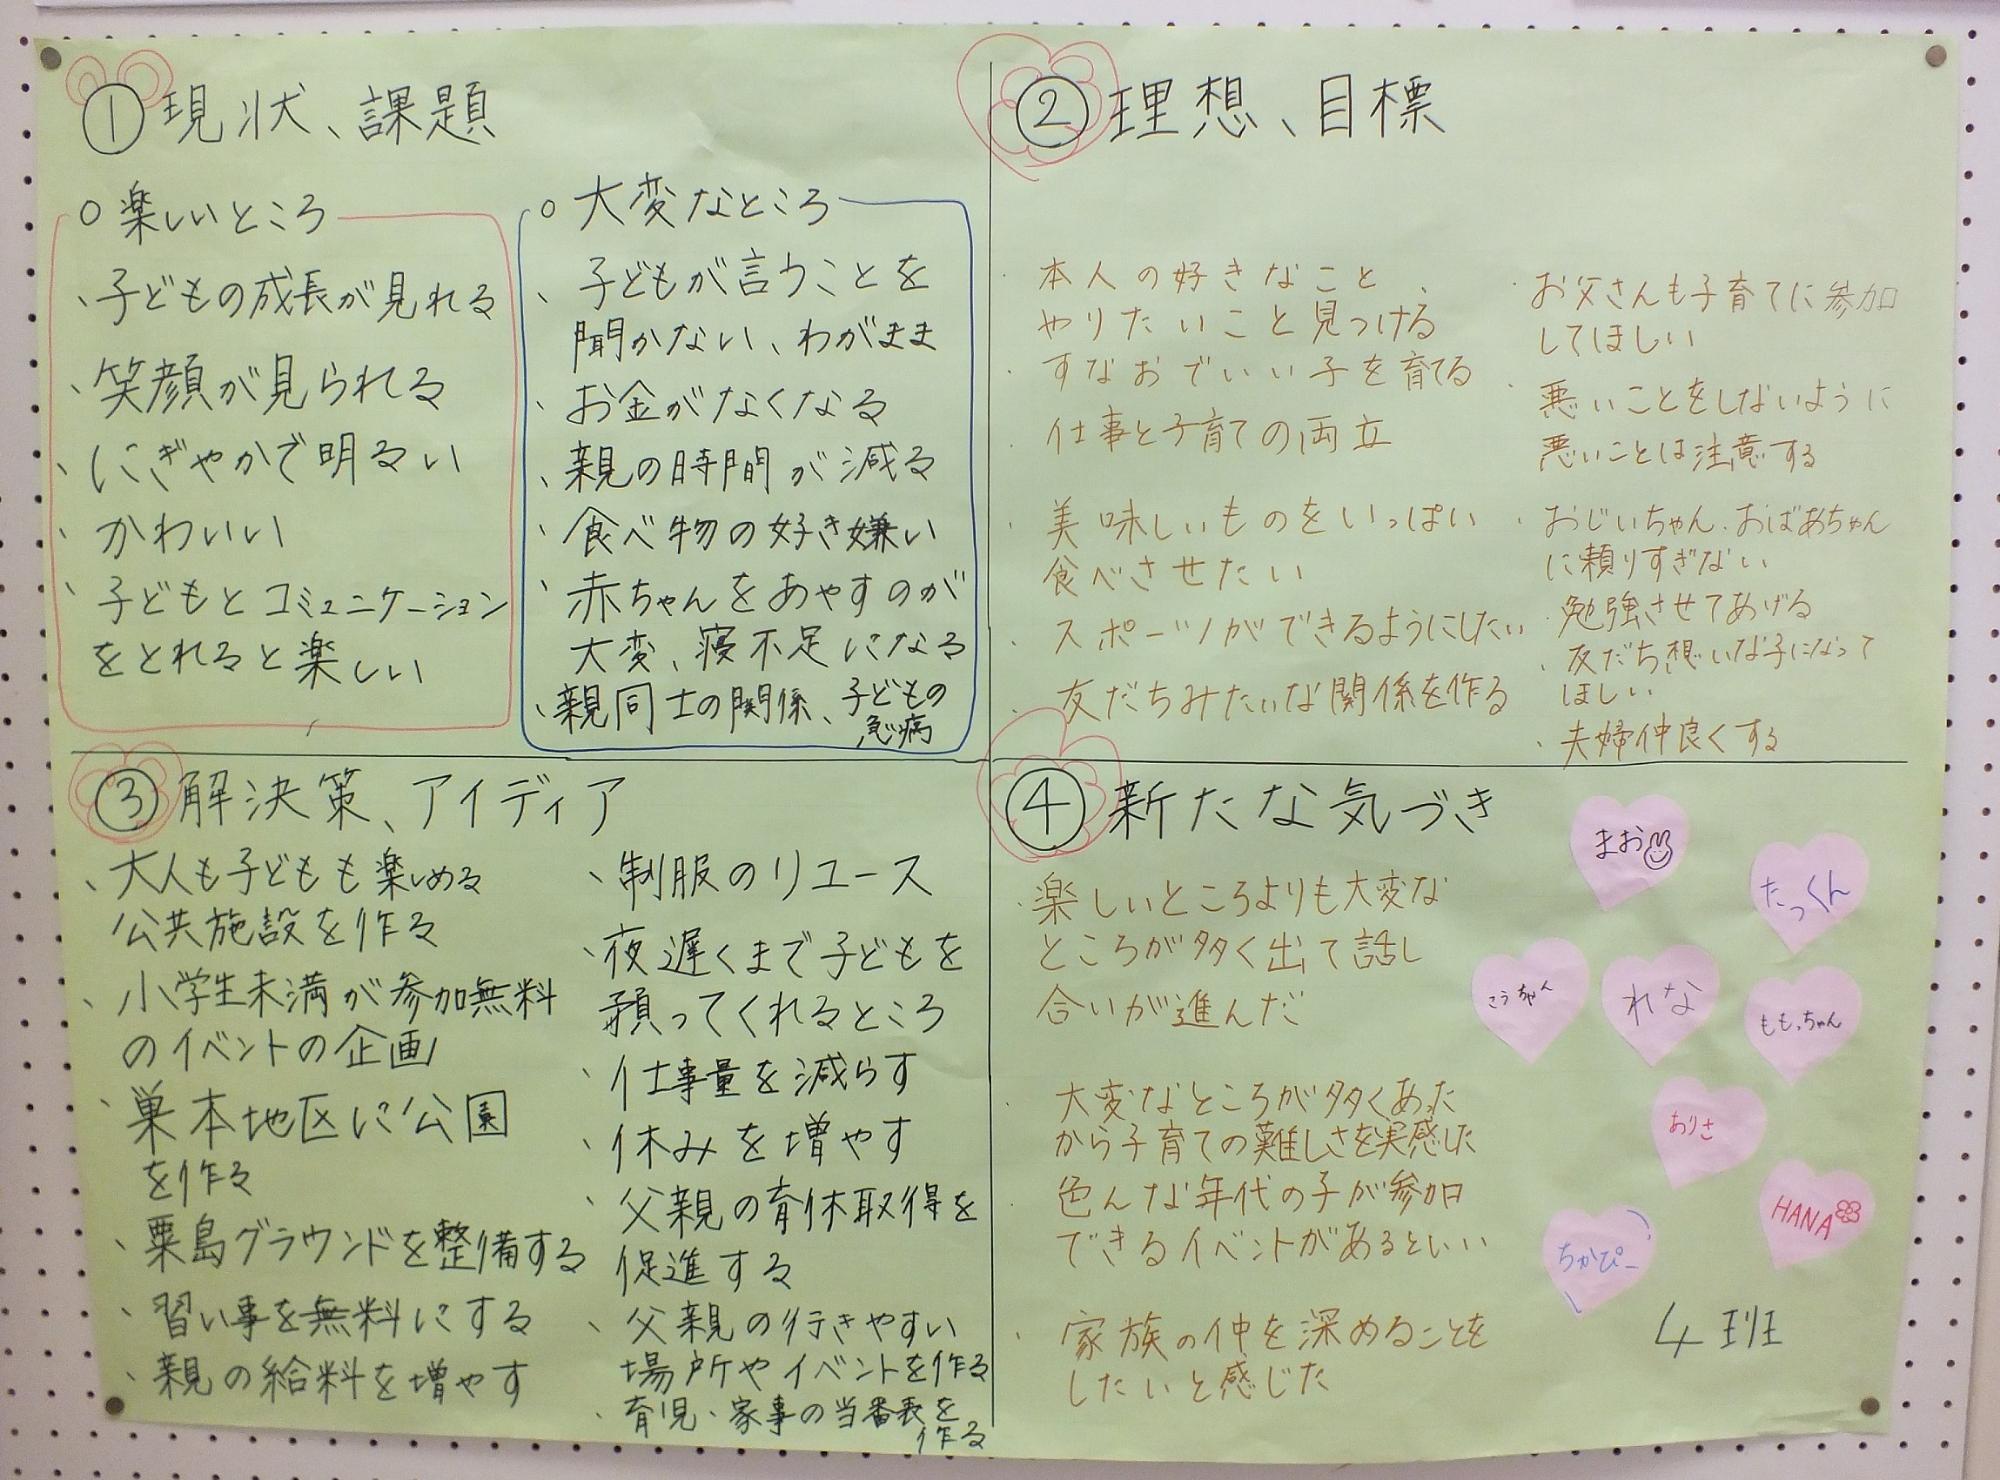 ① 現状、課題
○ 楽しいところ
、子どもの成長が見れる
、笑顔が見られる
、にぎやかで明るい
、かわいい
、子どもとコミュニケーション
をとれると楽しい
○ 大変なところ
、子どもが言うことを
聞かない、わがまま
、お金がなくなる
、親の時間が減る
、食べ物の好き嫌い
、赤ちゃんをあやすのが
大変、寝不足になる
、親同士の関係、子どもの
急病
② 理想、目標
・本人の好きなこと、
やりたいこと見つける
・すなおでいい子を育てる
・仕事と子育ての両立
・美味しいものをいっぱい
食べさせたい
・スポーツができるようにしたい
・友だちみたいな関係を作る
・お父さんも子育てに参加
してほしい
・悪いことをしないように
悪いことは注意する
・おじいちゃん、おばあちゃん
に頼りすぎない
・勉強させてあげる
・友だち想いな子になって
ほしい
・夫婦仲良くする
③ 解決策、アイディア
、大人も子どもも楽しめる
公共施設を作る
、小学生未満が参加無料
のイベントの企画
、巣本地区に公園
を作る
、粟島グラウンドを整備する
、習い事を無料にする
、親の給料を増やす
、制服のリユース
、夜遅くまで子どもを
預ってくれるところ
、仕事量を減らす
、休みを増やす
、父親の育休取得を
促進する
、父親の行きやすい
場所やイベントを作る
、育児・家事の当番表を
作る
④ 新たな気づき
・楽しいところよりも大変な
ところが多く出て話し
合いが進んだ
・大変なところが多くあった
から子育ての難しさを実感した
・色んな年代の子が参加
できるイベントがあるといい
・家族の仲を深めることを
したいと感じた
まお
たっくん
こうちゃん
れな
ももっちゃん
ありさ
HANA
ちかぴー
4班